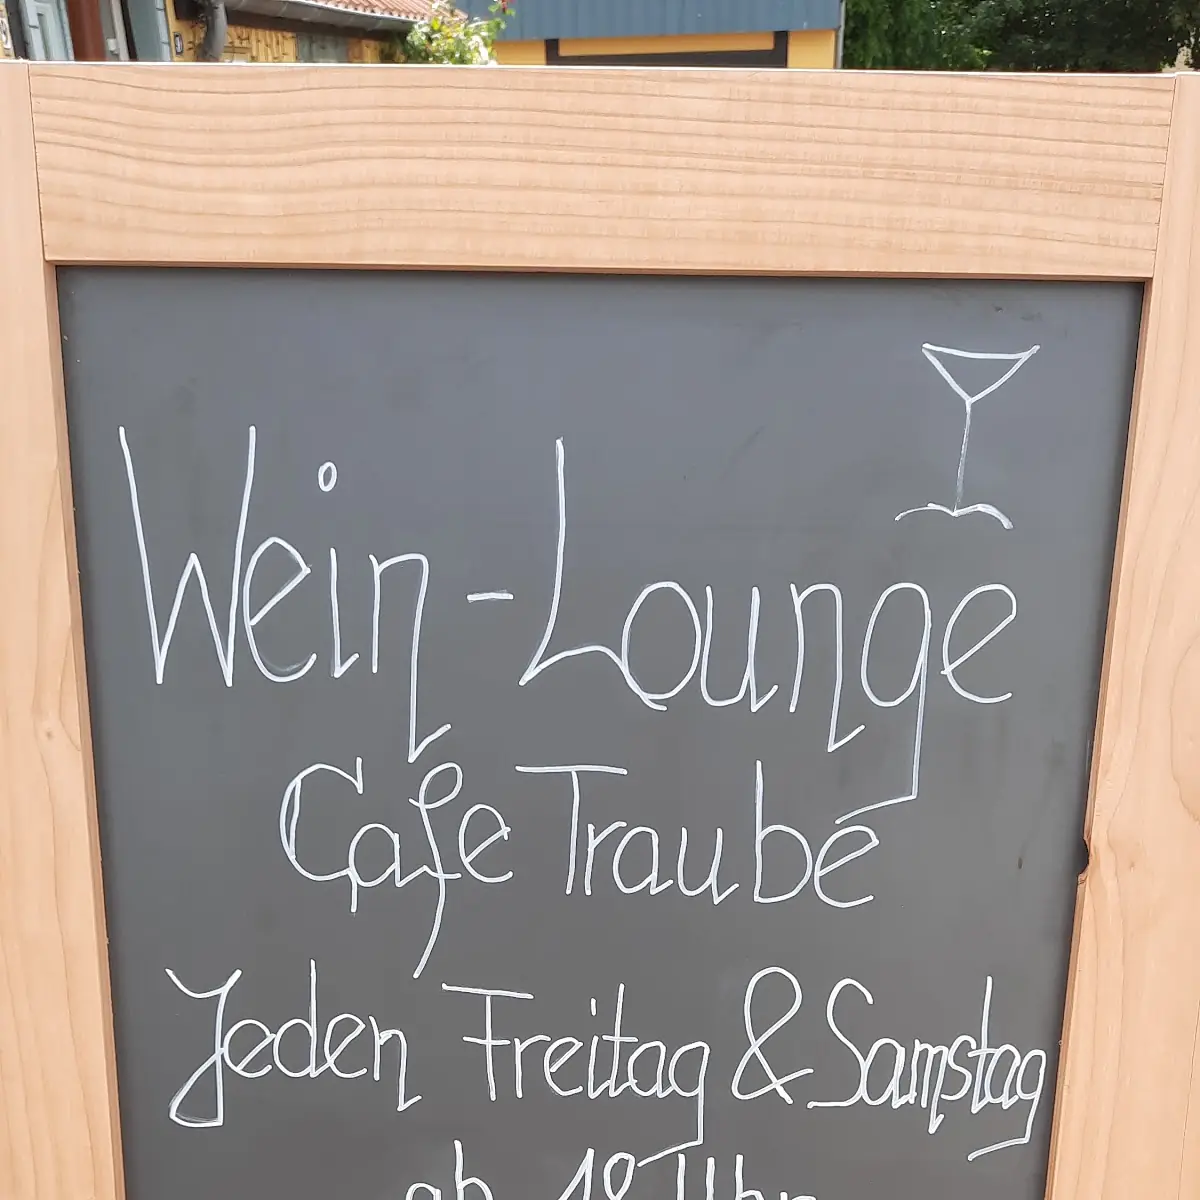 Wein-Lounge
Cafe Traube
Jeden Freitag & Samstag
ab Uhr